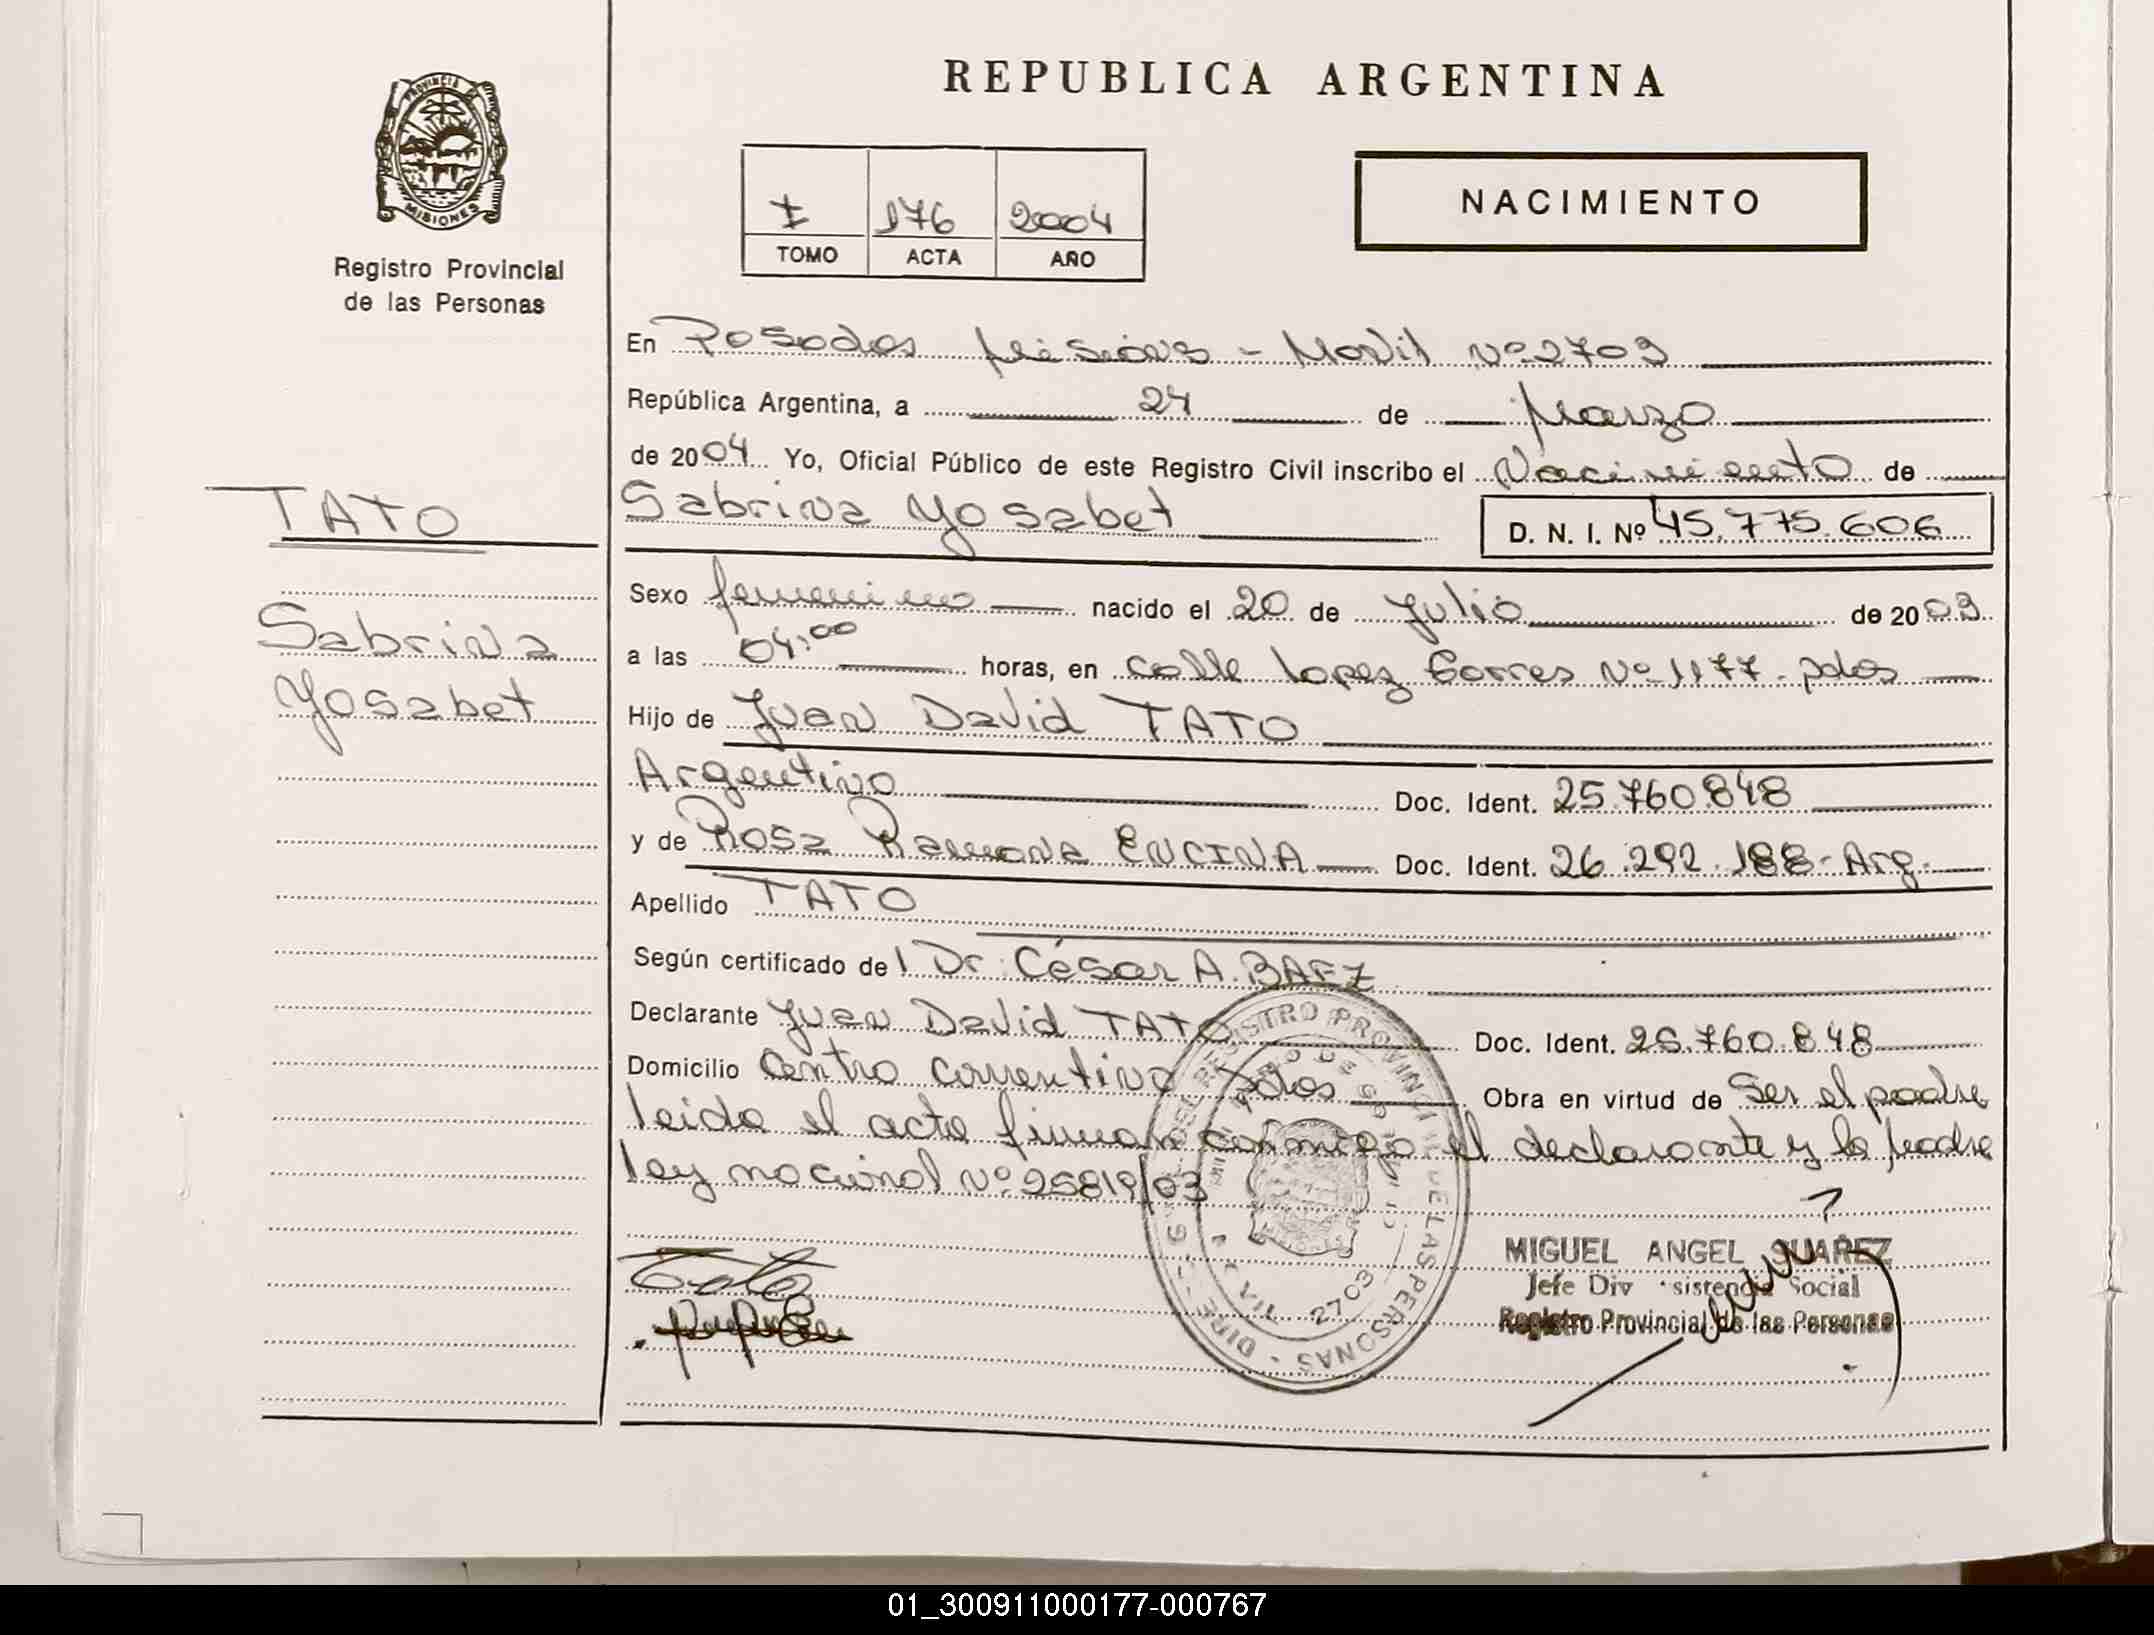 PROVINCIA
MISIONES
Registro Provincial
de las Personas
REPUBLICA ARGENTINA
I 176 2004
TOMO ACTA AÑO
NACIMIENTO
En Posadas Misiones - Movil Nº 2703
República Argentina, a 24 de Marzo
de 2004 Yo, Oficial Público de este Registro Civil inscribo el Nacimiento de
Sabrina Yosabet D. N. I. Nº 45.775.606
TATO
Sabrina
Yosabet
Sexo femenino nacido el 20 de Julio de 2003
a las 04:00 horas, en calle Lopez Torres Nº 1177 - pdas
Hijo de Juan David TATO
Argentino Doc. Ident. 25.760.848
y de Rosa Ramona ENCINA Doc. Ident. 26.292.188 - Arg.
Apellido TATO
Según certificado del Dr. César A. BAEZ
Declarante Juan David TATO Doc. Ident. 25.760.848
Domicilio Centro correntino pdas Obra en virtud de Ser el padre
leida el acta firman conmigo el declarante y la madre
ley nacional Nº 25819/03
Tato
MIGUEL ANGEL SUAREZ
Jefe Div sistencia Social
Registro Provincial de las Personas
REGISTRO PROVINCIAL DE LAS PERSONAS
2703
01_300911000177-000767